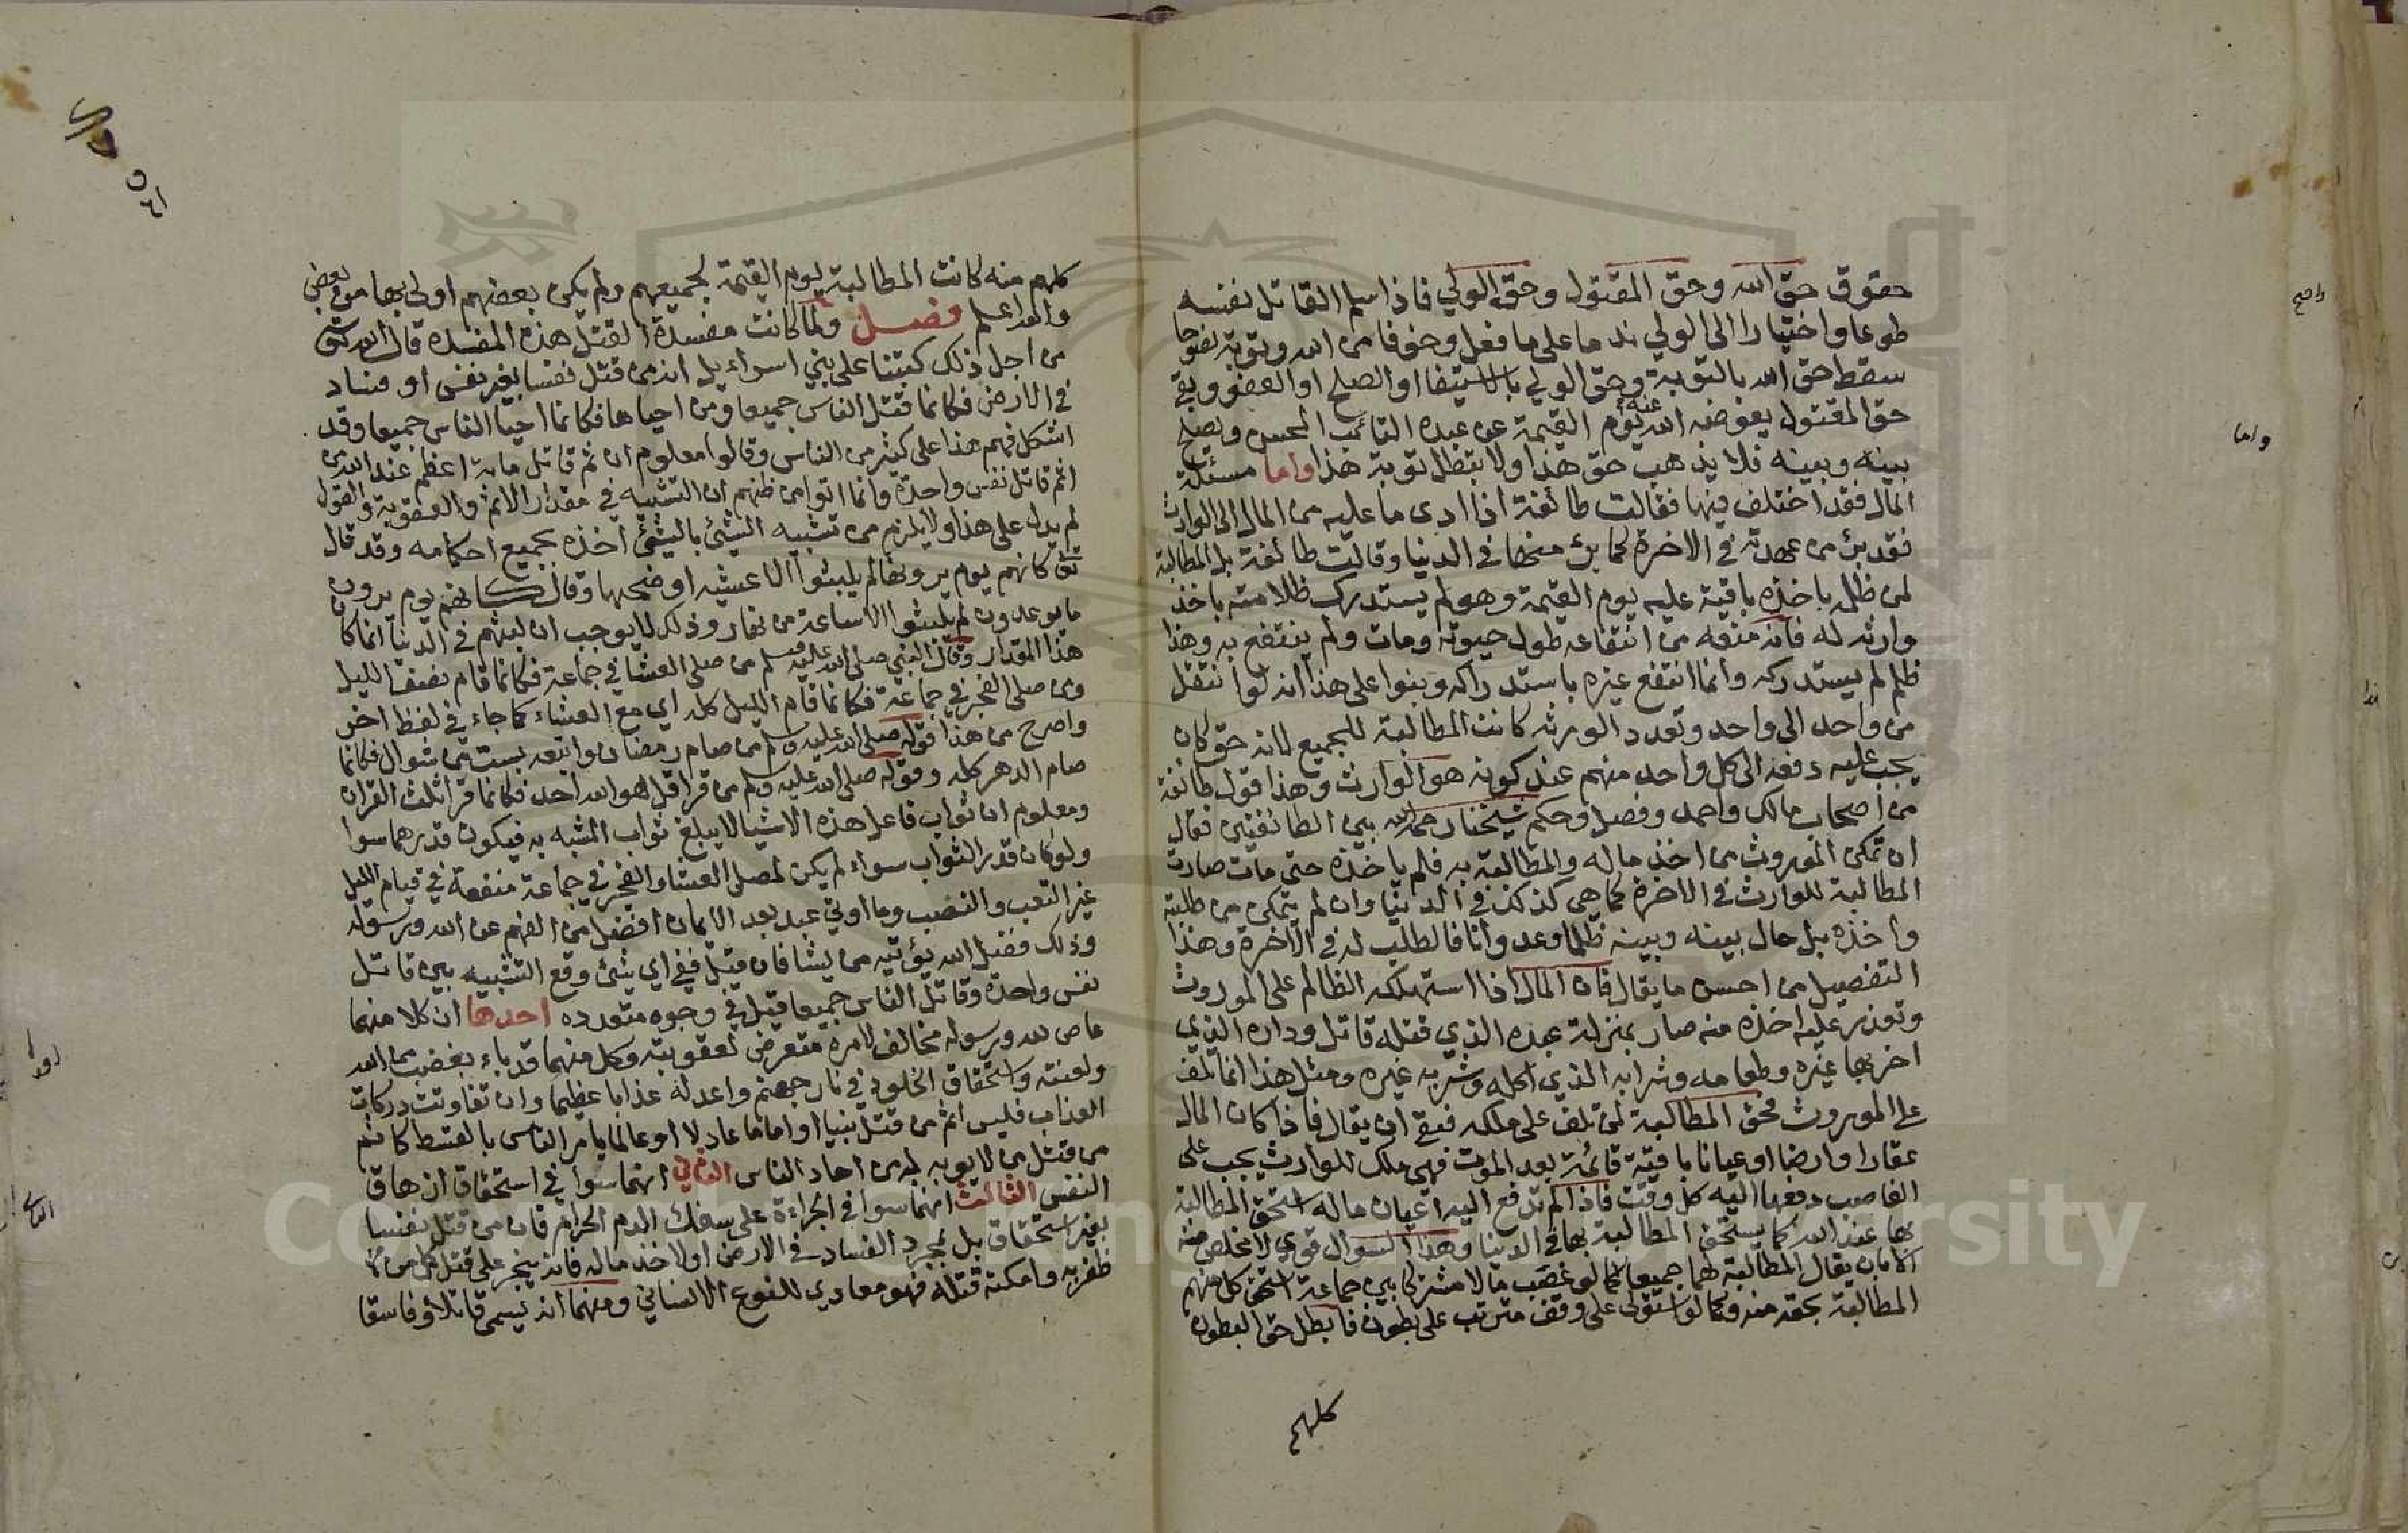 حقوق حق الله وحق المقتول وحق الولي فاذا سلم القاتل نفسه
طوعا واختيارا الى الولي ندما على ما فعل وخوفا من الله وتوبة نصوحا
سقط حق الله بالتوبة وحق الولي بالاستيفا او الصلح او العفو وبقي
حق المقتول يعوضه الله عنه يوم القيمة عن عبده التائب المحسن ويصلح
بينه وبينه فلا يذهب حق هذا ولا بتطل توبة هذا واما مسئلة
المال فقد اختلف فيها فقالت طائفة اذا ادى ما عليه من المال الى الوارث
فقد برئ من عهدته في الاخرة كما برئ منها في الدنيا وقالت طائفة بل المطالبة
لمن ظلمه باخذه باقية عليه يوم القيمة وهو لم يستدرك ظلامته باخذ
وارثه له فانه منعه من انتفاعه طول حيوته ومات ولم ينتفع به وهذا
ظلم لم يستدركه وانما انتفع غيره باستدراكه وبنوا على هذا انه لو انتقل
من واحد الى واحد وتعدد الورثه كانت المطالبة للجميع لانه حق كان
يجب عليه دفعه الى كل واحد منهم عند كونه هو الوارث وهذا قول طائفة
من اصحاب مالك واحمد وفصل وحكم شيخنا رحمه الله بين الطائفتين فقال
ان تمكن الموروث من اخذ ماله والمطالبة به فلم ياخذه حتى مات صارت
المطالبة للوارث في الاخرة كما هي كذلك في الدنيا وان لم يتمكن من طلبه
واخذه بل حال بينه وبينه ظلما وعدوانا فالطلب له في الاخرة وهذا
التفصيل من احسن ما يقال فان المال اذا استهلكه الظالم على الموروث
وتعذر عليه اخذه منه صار بمنزلة عبده الذي قتله قاتل وداره الذي
اخربها غيره وطعامه وشرابه الذي اكله وشربه غيره ومثل هذا انما تلف
على الموروث فحق المطالبة لمن تلف على ملكه فبقي ان يقال فاذا كان المال
عقارا وارضا او عيانا باقية قائمة بعد الموت فهي ملك للوارث يجب على
الغاصب دفعها اليه كل وقت فاذا لم تدفع اليه اعيان ماله استحق المطالبة
بها عند الله كما يستحق المطالبة بها في الدنيا وهذا السوال قوي لا مخلص منه
الا بان يقال المطالبة لهما جميعا كما لو غصب مالا مشتركا بين جماعة استحق كل منهم
المطالبة بحقه منه وكما لو استولى على وقف مترتب على بطون فابطل حق البطون
كلهم
كلهم منه كانت المطالبة يوم القيمة لجميعهم ولم يكن بعضهم اولى بها من بعض
والله اعلم فصل ولما كانت مفسدة القتل هذه المفسدة قال الله تعى
من اجل ذلك كتبنا على بني اسراءيل انه من قتل نفسا بغير نفس او فساد
في الارض فكانما قتل الناس جميعا ومن احياها فكانما احيا الناس جميعا وقد
اشكل فهم هذا على كثير من الناس وقالوا معلوم ان ثم قاتل ماية اعظم عند الله من
اثم قاتل نفس واحدة وانما اتوا من ظنهم ان التشبيه في مقدار الاثم والعقوبة والقول
لم يدل على هذا ولا يلزم من تشبيه الشئ بالشئ اخذه بجميع احكامه وقد قال
تعى كانهم يوم يرونها لم يلبثوا الا عشيه او ضحيها وقال كانهم يوم يرون
ما يوعدون لم يلبثوا الا ساعة من نهار وذلك لا يوجب ان لبثهم في الدنيا انما كان
هذا المقدار وقال النبي صلى الله عليه وسلم من صلى العشا في جماعة فكانما قام نصف الليل
ومن صلى الفجر في جماعة فكانما قام الليل كله اي مع العشاء كما جاء في لفظ اخر
واصرح من هذا قوله صلى الله عليه وسلم من صام رمضان واتبعه بست من شوال فكانما
صام الدهر كله وقوله صلى الله عليه وسلم من قرا قل هو الله احد فكانما قرا ثلث القران
ومعلوم ان ثواب فاعل هذه الاشيا لا يبلغ ثواب المشبه به فيكون قدرهما سوا
ولو كان قدر الثواب سواء لم يكن لمصلي العشا والفجر في جماعة منفعة في قيام الليل
غير التعب والنصب وما اوتي عبد بعد الايمان افضل من الفهم عن الله ورسوله
وذلك فضل الله يؤتيه من يشا فان قيل ففي اي شئ وقع التشبيه بين قاتل
نفس واحدة وقاتل الناس جميعا قيل في وجوه متعدده احدها ان كلا منهما
عاص لله ورسوله مخالف لامره متعرض لعقوبته وكل منهما قد باء بغضب من الله
ولعنته واستحقاق الخلود في نار جهنم واعد له عذابا عظيما وان تفاوتت دركات
العذاب فليس اثم من قتل نبيا او اماما عادلا او عالما يامر الناس بالقسط كاثم
من قتل من لا يوبه له من احاد الناس الثاني انهما سوا في استحقاق ازهاق
النفس الثالث انهما سوا في الجراءة على سفك الدم الحرام فان من قتل نفسا
بغير استحقاق بل لمجرد الفساد في الارض او لاخذ ماله فانه يتجر على قتل كل من
ظفر به وامكنه قتله فهو معادي للنوع الانساني ومنهما انه يسمى قاتلا وفاسقا
واما